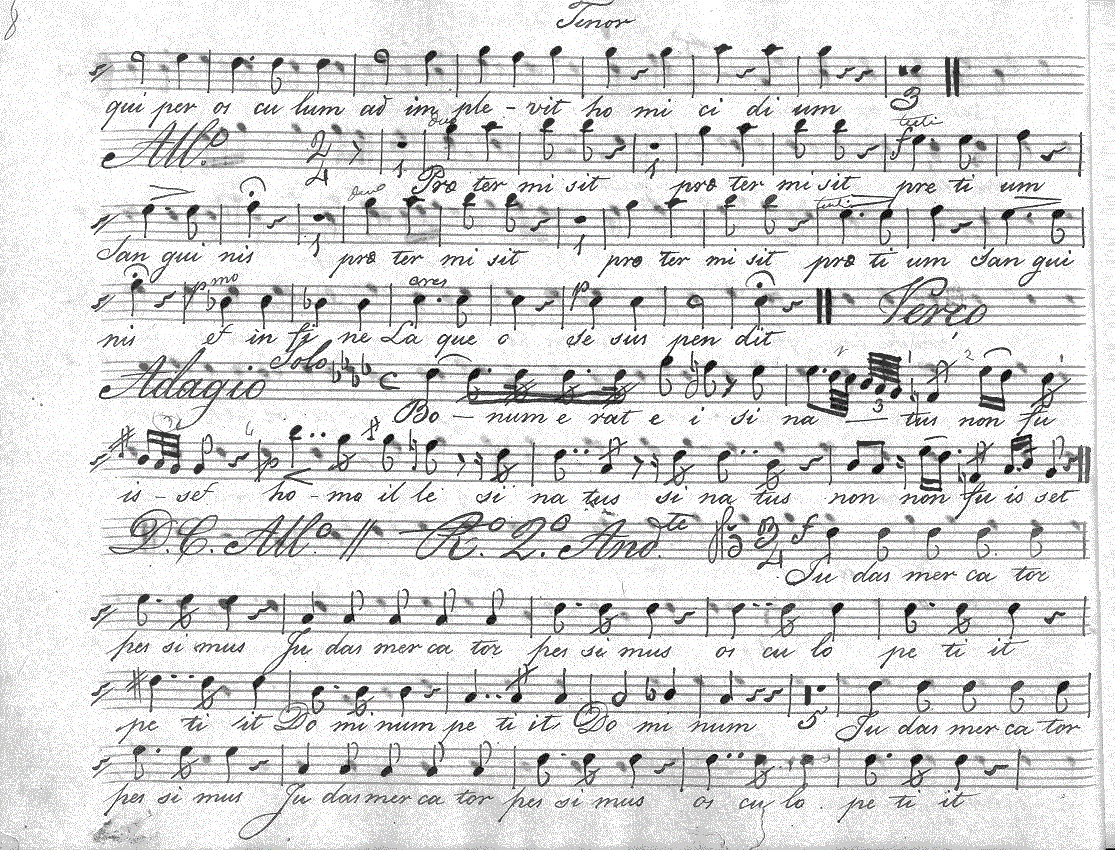 8
Tenor
qui per os cu lum ad im ple - vit ho mi ci di um
3
duo
tuti
All.º 2/4 1 1 f
Pro ter mi sit pro ter mi sit pre ti um
duo tuti
1 1
San gui nis pro ter mi sit pro ter mi sit pre ti um San gui
pmo cres p Verco
nis et in fi ne La que o se sus pen dit
Adagio Solo C
Bo - num e rat e i si na - tus non fu
is - set ho - mo il le si na tus si na tus non non fu is set
D.C. All.º // R.º 2.º And.te 3/4 f
Ju das mer ca tor
pes si mus Ju das mer ca tor pes si mus os cu lo pe ti it
5
pe ti it Do mi num pe ti it Do mi num Ju das mer ca tor
pes si mus Ju das mer ca tor pes si mus os cu lo pe ti it